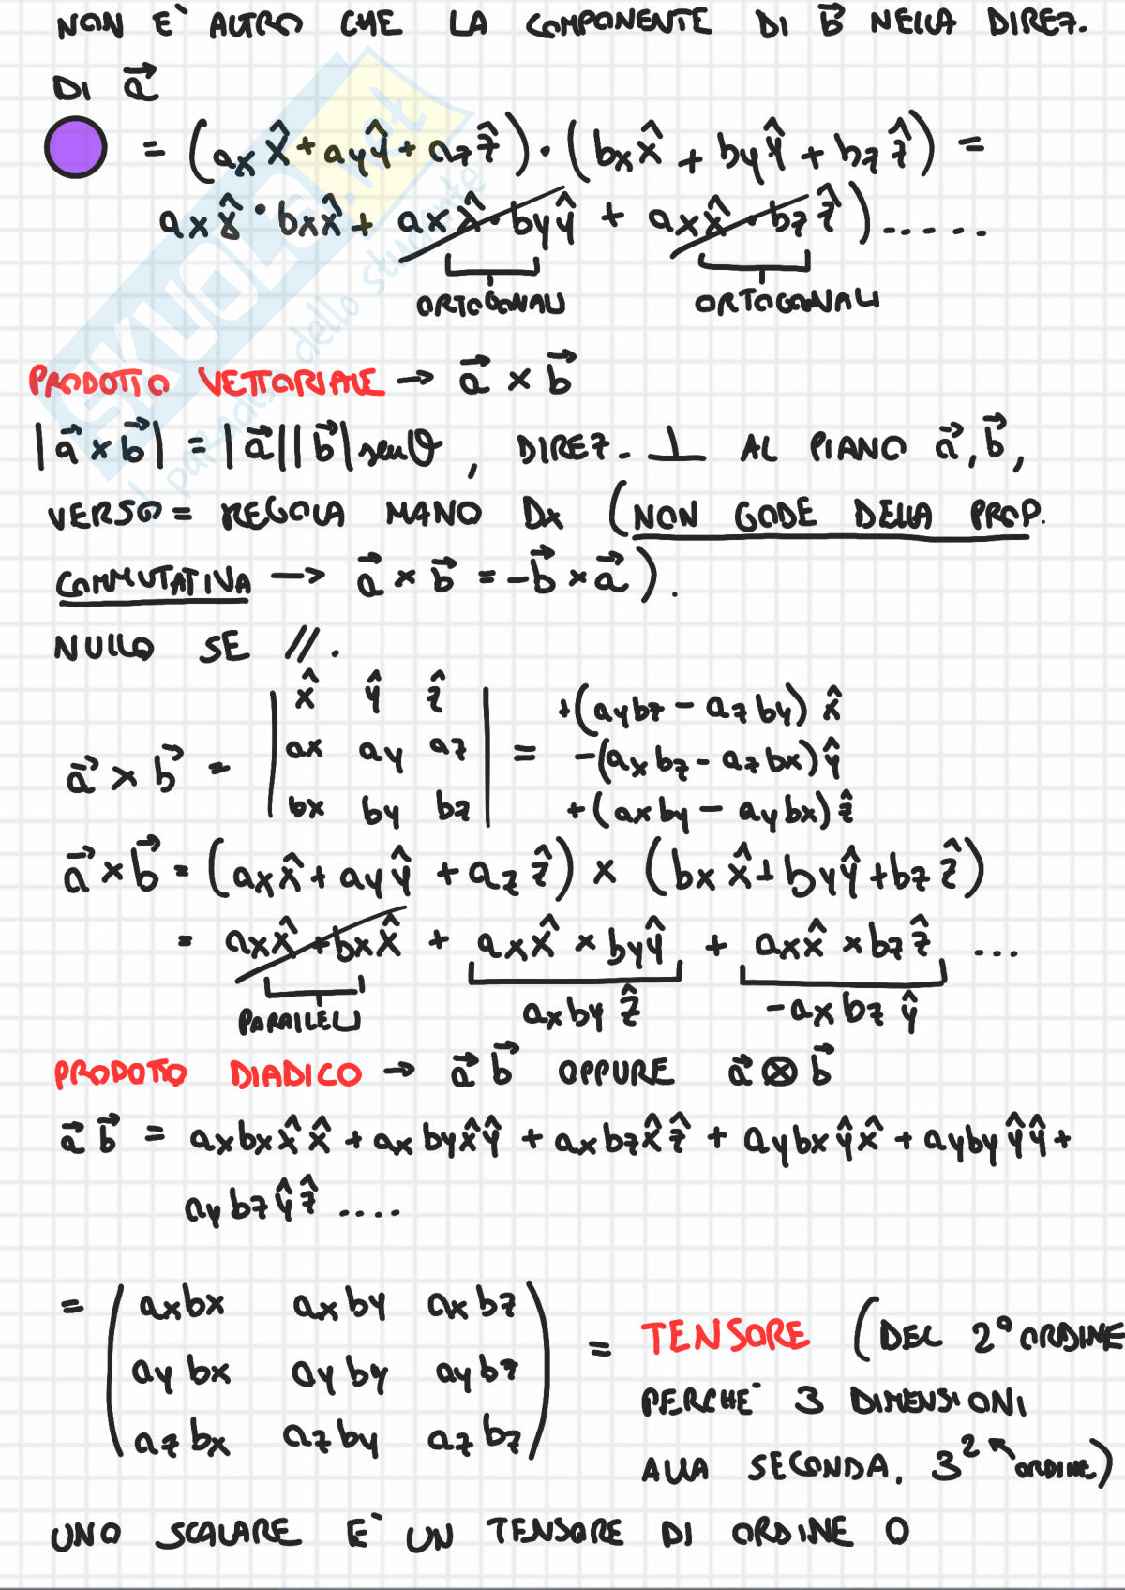 NON E' ALTRO CHE LA COMPONENTE DI b⃗ NELLA DIREZ.
DI a⃗
= (ax x̂ + ay ŷ + az ẑ) · (bx x̂ + by ŷ + bz ẑ) =
ax x̂ · bx x̂ + ax x̂ · by ŷ + ax x̂ · bz ẑ) ......
ORTOGONALI ORTOGONALI
PRODOTTO VETTORIALE → a⃗ × b⃗
|a⃗ × b⃗| = |a⃗||b⃗| senθ , DIREZ. ⊥ AL PIANO a⃗, b⃗,
VERSO = REGOLA MANO DX (NON GODE DELLA PROP.
COMMUTATIVA → a⃗ × b⃗ = -b⃗ × a⃗).
NULLO SE //.
x̂ ŷ ẑ +(ay bz - az by) x̂
a⃗ × b⃗ = | ax ay az | = -(ax bz - az bx) ŷ
bx by bz +(ax by - ay bx) ẑ
a⃗ × b⃗ = (ax x̂ + ay ŷ + az ẑ) × (bx x̂ + by ŷ + bz ẑ)
= ax x̂ + bx x̂ + ax x̂ × by ŷ + ax x̂ × bz ẑ ...
PARALLELI ax by ẑ -ax bz ŷ
PRODOTTO DIADICO → a⃗ b⃗ OPPURE a⃗ ⊗ b⃗
a⃗ b⃗ = ax bx x̂ x̂ + ax by x̂ ŷ + ax bz x̂ ẑ + ay bx ŷ x̂ + ay by ŷ ŷ +
ay bz ŷ ẑ ....
= ( ax bx ax by ax bz
ay bx ay by ay bz
az bx az by az bz ) = TENSORE (DEL 2° ORDINE
PERCHE' 3 DIMENSIONI
ALLA SECONDA. 3² ← ORDINE)
UNO SCALARE E' UN TENSORE DI ORDINE 0
SKUOLA.net
il portale dello studente